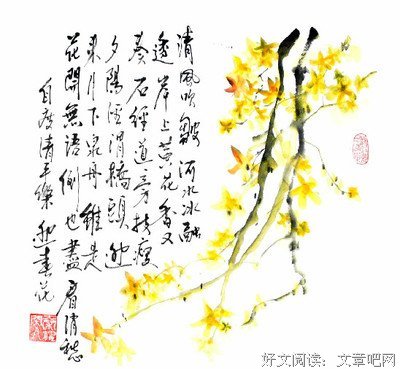 清風吹皺河水冰融
透岸上黃花香又
奏石經道旁扶瘦
夕陽涇渭橋頭迎
来月下泉舟誰是
花開無語倒也盡愁
自度清平樂迎春花
好文阅读:文章吧网